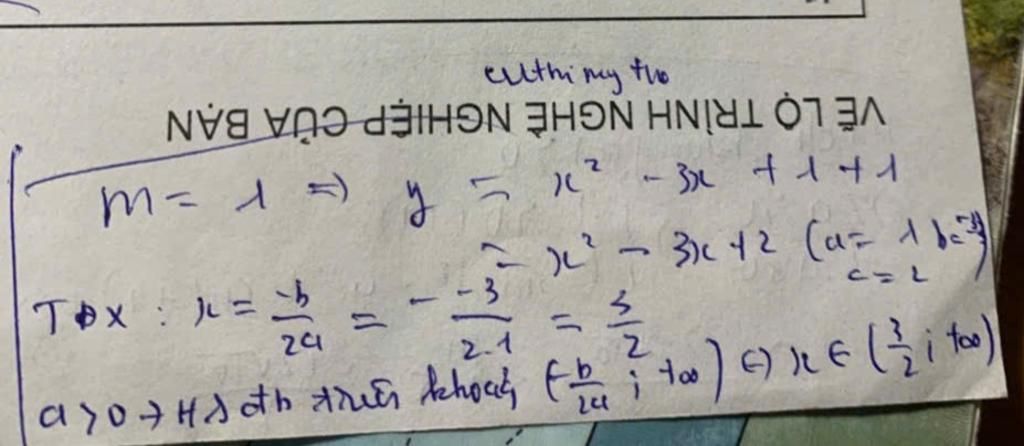 VẼ LỘ TRÌNH NGHỀ NGHIỆP CỦA BẠN
m = 1 => y = x² - 3x + 1 + 1
= x² - 3x + 2 (a = 1 b = -3
c = 2
TĐX : x = -b/2a = - -3/2.1 = 3/2
a > 0 → HS đb trên khoảng (-b/2a ; +∞) <=> x ∈ (3/2 ; +∞)